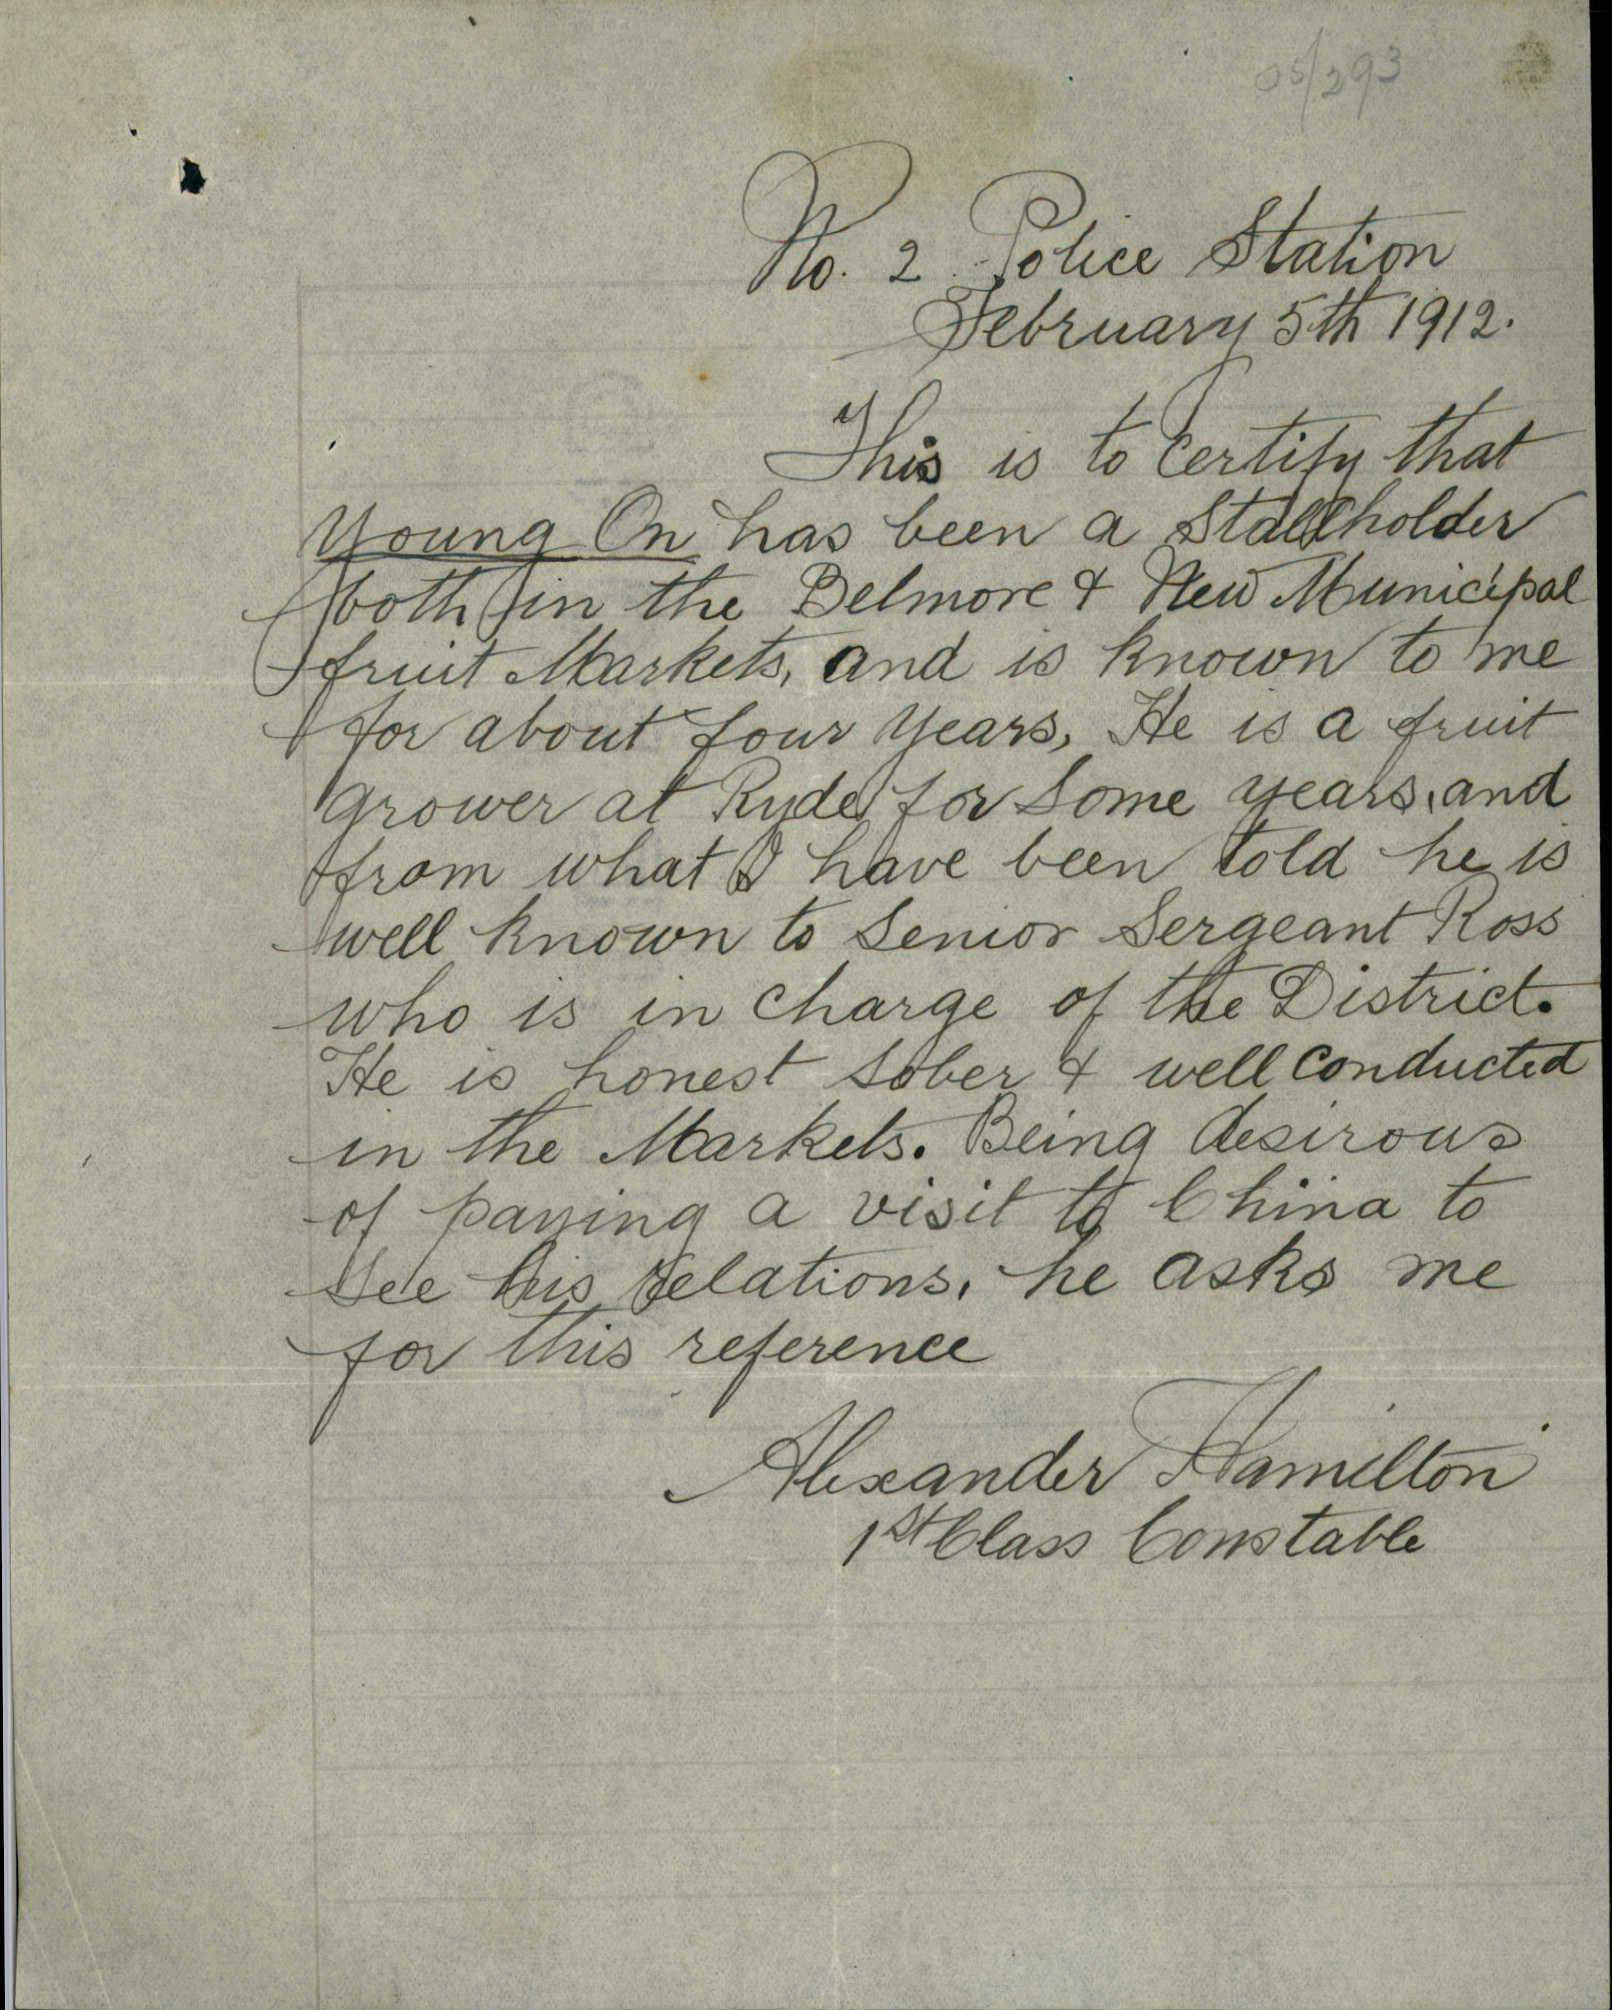 05/293
No. 2 Police Station
February 5th 1912.
This is to certify that
Young On has been a Stallholder
both in the Belmore & New Municipal
fruit Markets, and is known to me
for about four years, He is a fruit
grower at Ryde for some years, and
from what I have been told he is
well known to Senior Sergeant Ross
who is in charge of the District.
He is honest sober & well conducted
in the Markets. Being desirous
of paying a visit to China to
see his relations, he asks me
for this reference
Alexander Hamilton
1st Class Constable